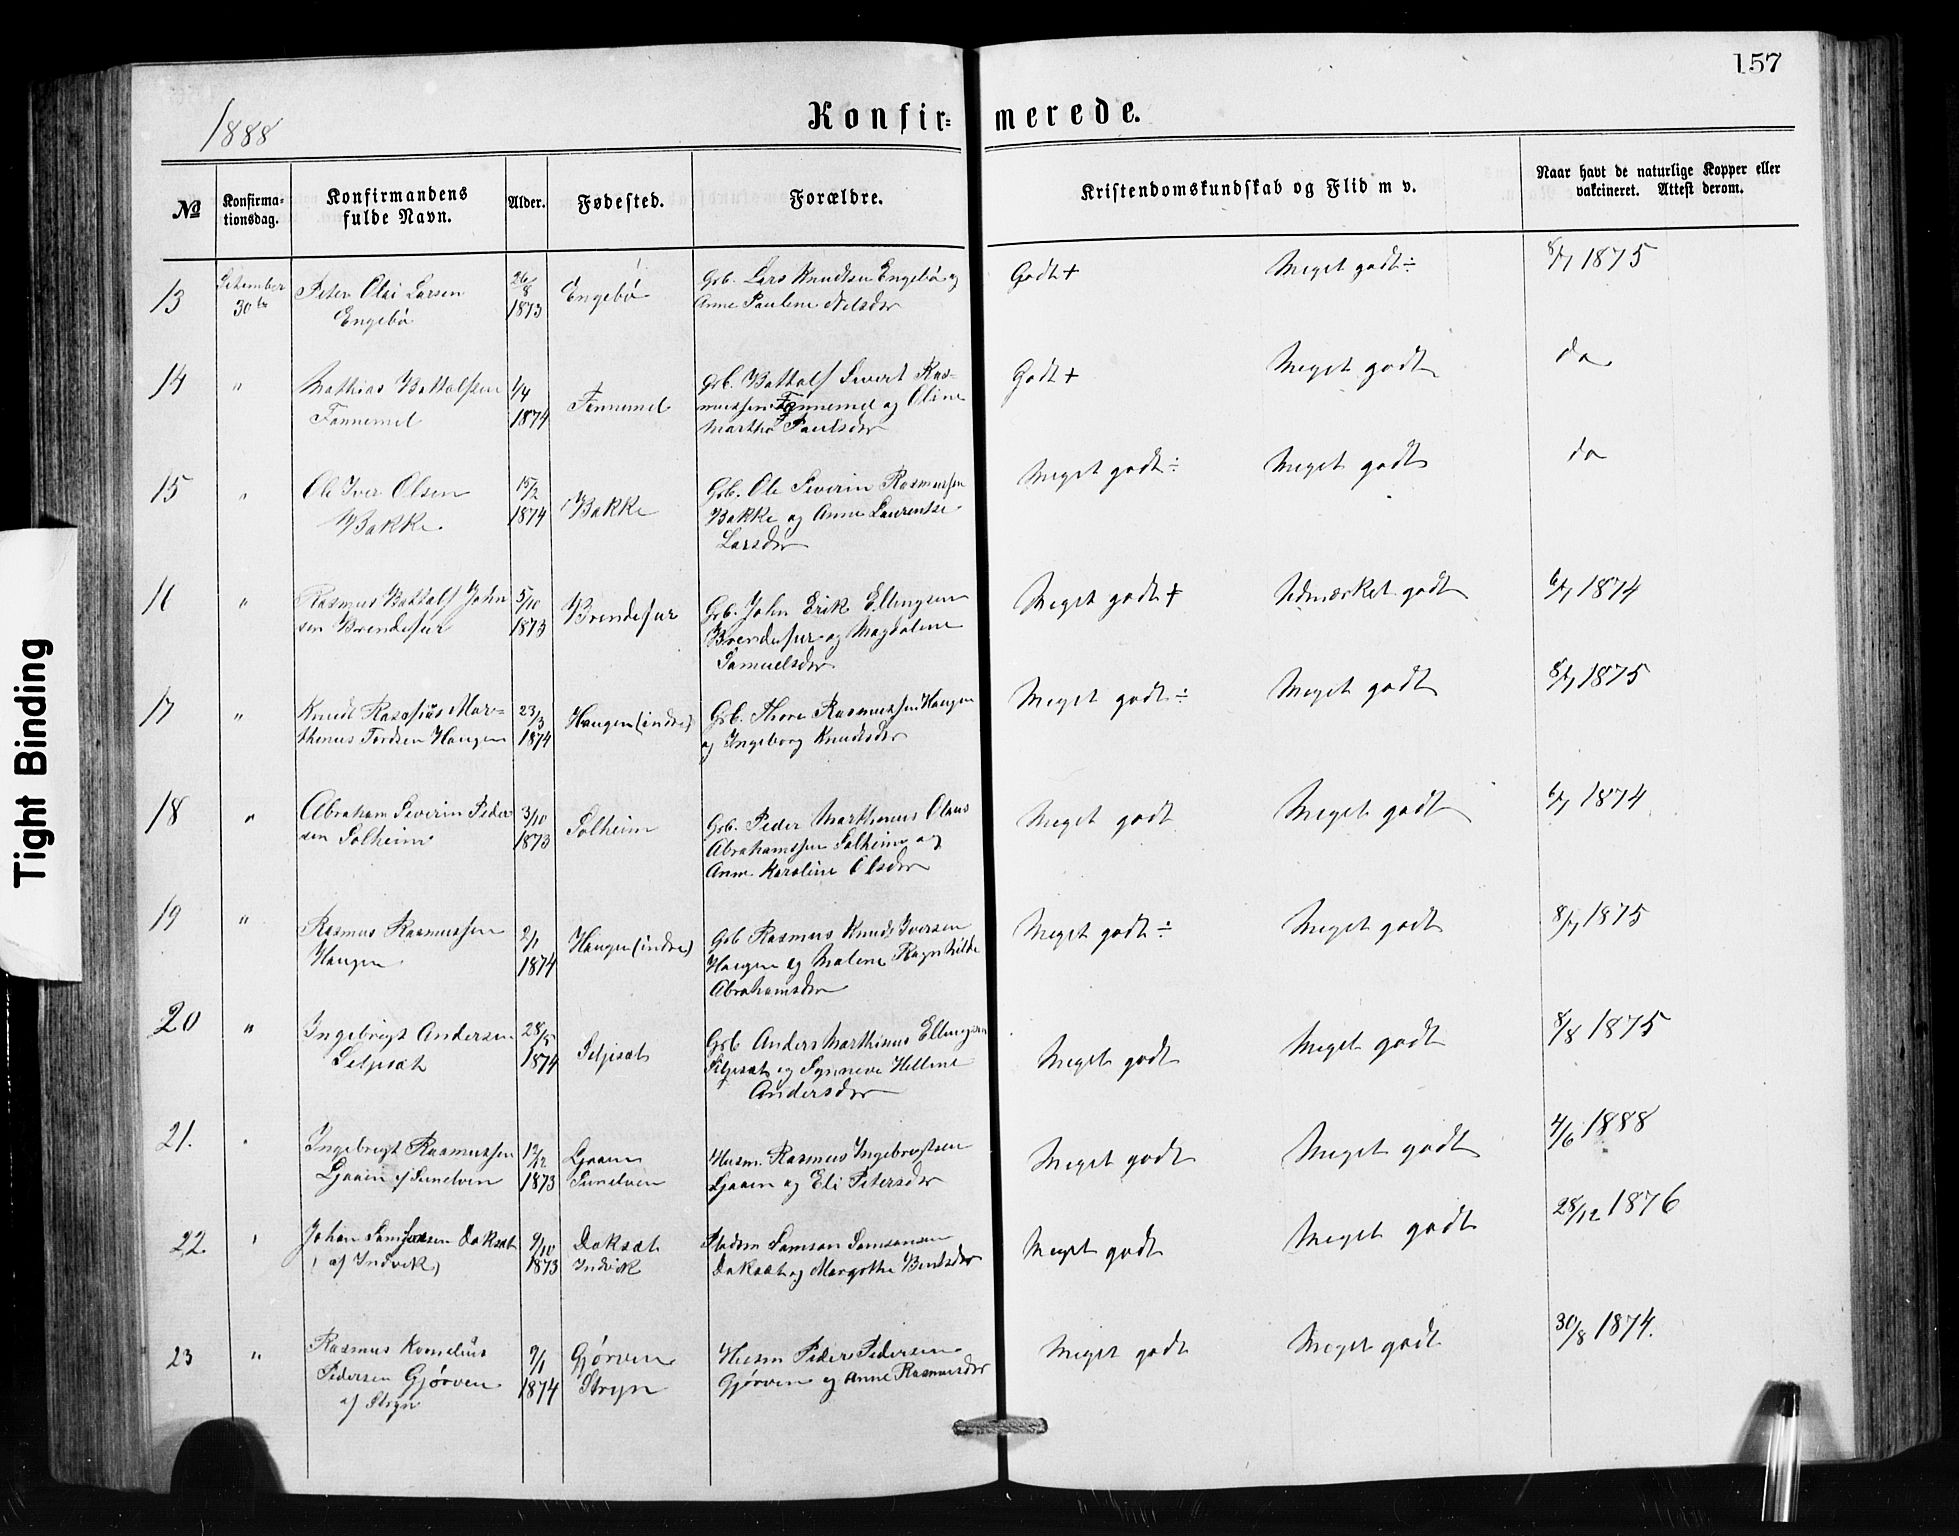 157
1888
Konfirmerede.
№
Konfirma-
tionsdag.
Konfirmandens
fulde Navn.
Alder.
Fødested.
Forældre.
Kristendomskundskab og Flid m v.
Naar havt de naturlige Kopper eller
vakcineret. Attest derom.
13 September 30te Peter Olai Larsen Engebø 26/8 1873 Engebø Grb. Lars Knudsen Engebø og Anne Pauline Nilsdtr Godt + Meget godt ÷ 8/7 1875
14 " Mathias Bottolfsen Fannemel 1/4 1874 Fannemel Grb. Bottolf Sivert Rasmussen Fannemel og Oline Martha Paulsdtr Godt + Meget godt do
15 " Ole Iver Olsen Bakke 15/2 1874 Bakke Grb. Ole Severin Rasmussen Bakke og Anne Laurentse Larsdtr Meget godt ÷ Meget godt do
16 " Rasmus Bottolf Johnsen Brendefur 5/10 1873 Brendefur Grb. John Erik Ellingsen Brendefur og Magdalene Samuelsdtr Meget godt + Udmærket godt 6/7 1874
17 " Knudt Rasmus Marthinus Tordsen Haugen 23/3 1874 Haugen (indre) Grb. Thore Rasmussen Haugen og Ingeborg Knudsdtr Meget godt ÷ Meget godt 8/7 1875
18 " Abraham Severin Pedersen Solheim 3/10 1873 Solheim Grb. Peder Marthinus Olaus Abrahamssen Solheim og Anne Karoline Olsdtr Meget godt Meget godt 6/7 1874
19 " Rasmus Rasmussen Haugen 2/1 1874 Haugen (indre) Grb Rasmus Knudt Iversen Haugen og Malene Ragnhilde Abrahamsdtr Meget godt ÷ Meget godt 8/7 1875
20 " Ingebrigt Andersen Seljesæt 28/5 1874 Seljesæt Grb Anders Marthinus Ellingsen Seljesæt og Synneve Helline Andersdtr Meget godt Meget godt 8/8 1875
21. " Ingebrigt Rasmussen Ljøaen af Sunelven 12/12 1873 Ljøaen Sunelven Husm. Rasmus Ingebrigtsen Ljøaen og Eli Petersdtr Meget godt Meget godt 4/6 1888
22 " Johan Samsonsen Doksæt (af Indvik) 9/10 1873 Doksæt Indvik Pladsm Samson Samsonsen Doksæt og Margrethe Bentsdtr Meget godt Meget godt 28/12 1876
23 " Rasmus Kornelius Pedersen Gjørven af Stryn 9/1 1874 Gjørven Stryn Husm Peder Pedersen Gjørven og Anne Rasmusdtr Meget godt Meget godt 30/8 1874.
Tight Binding